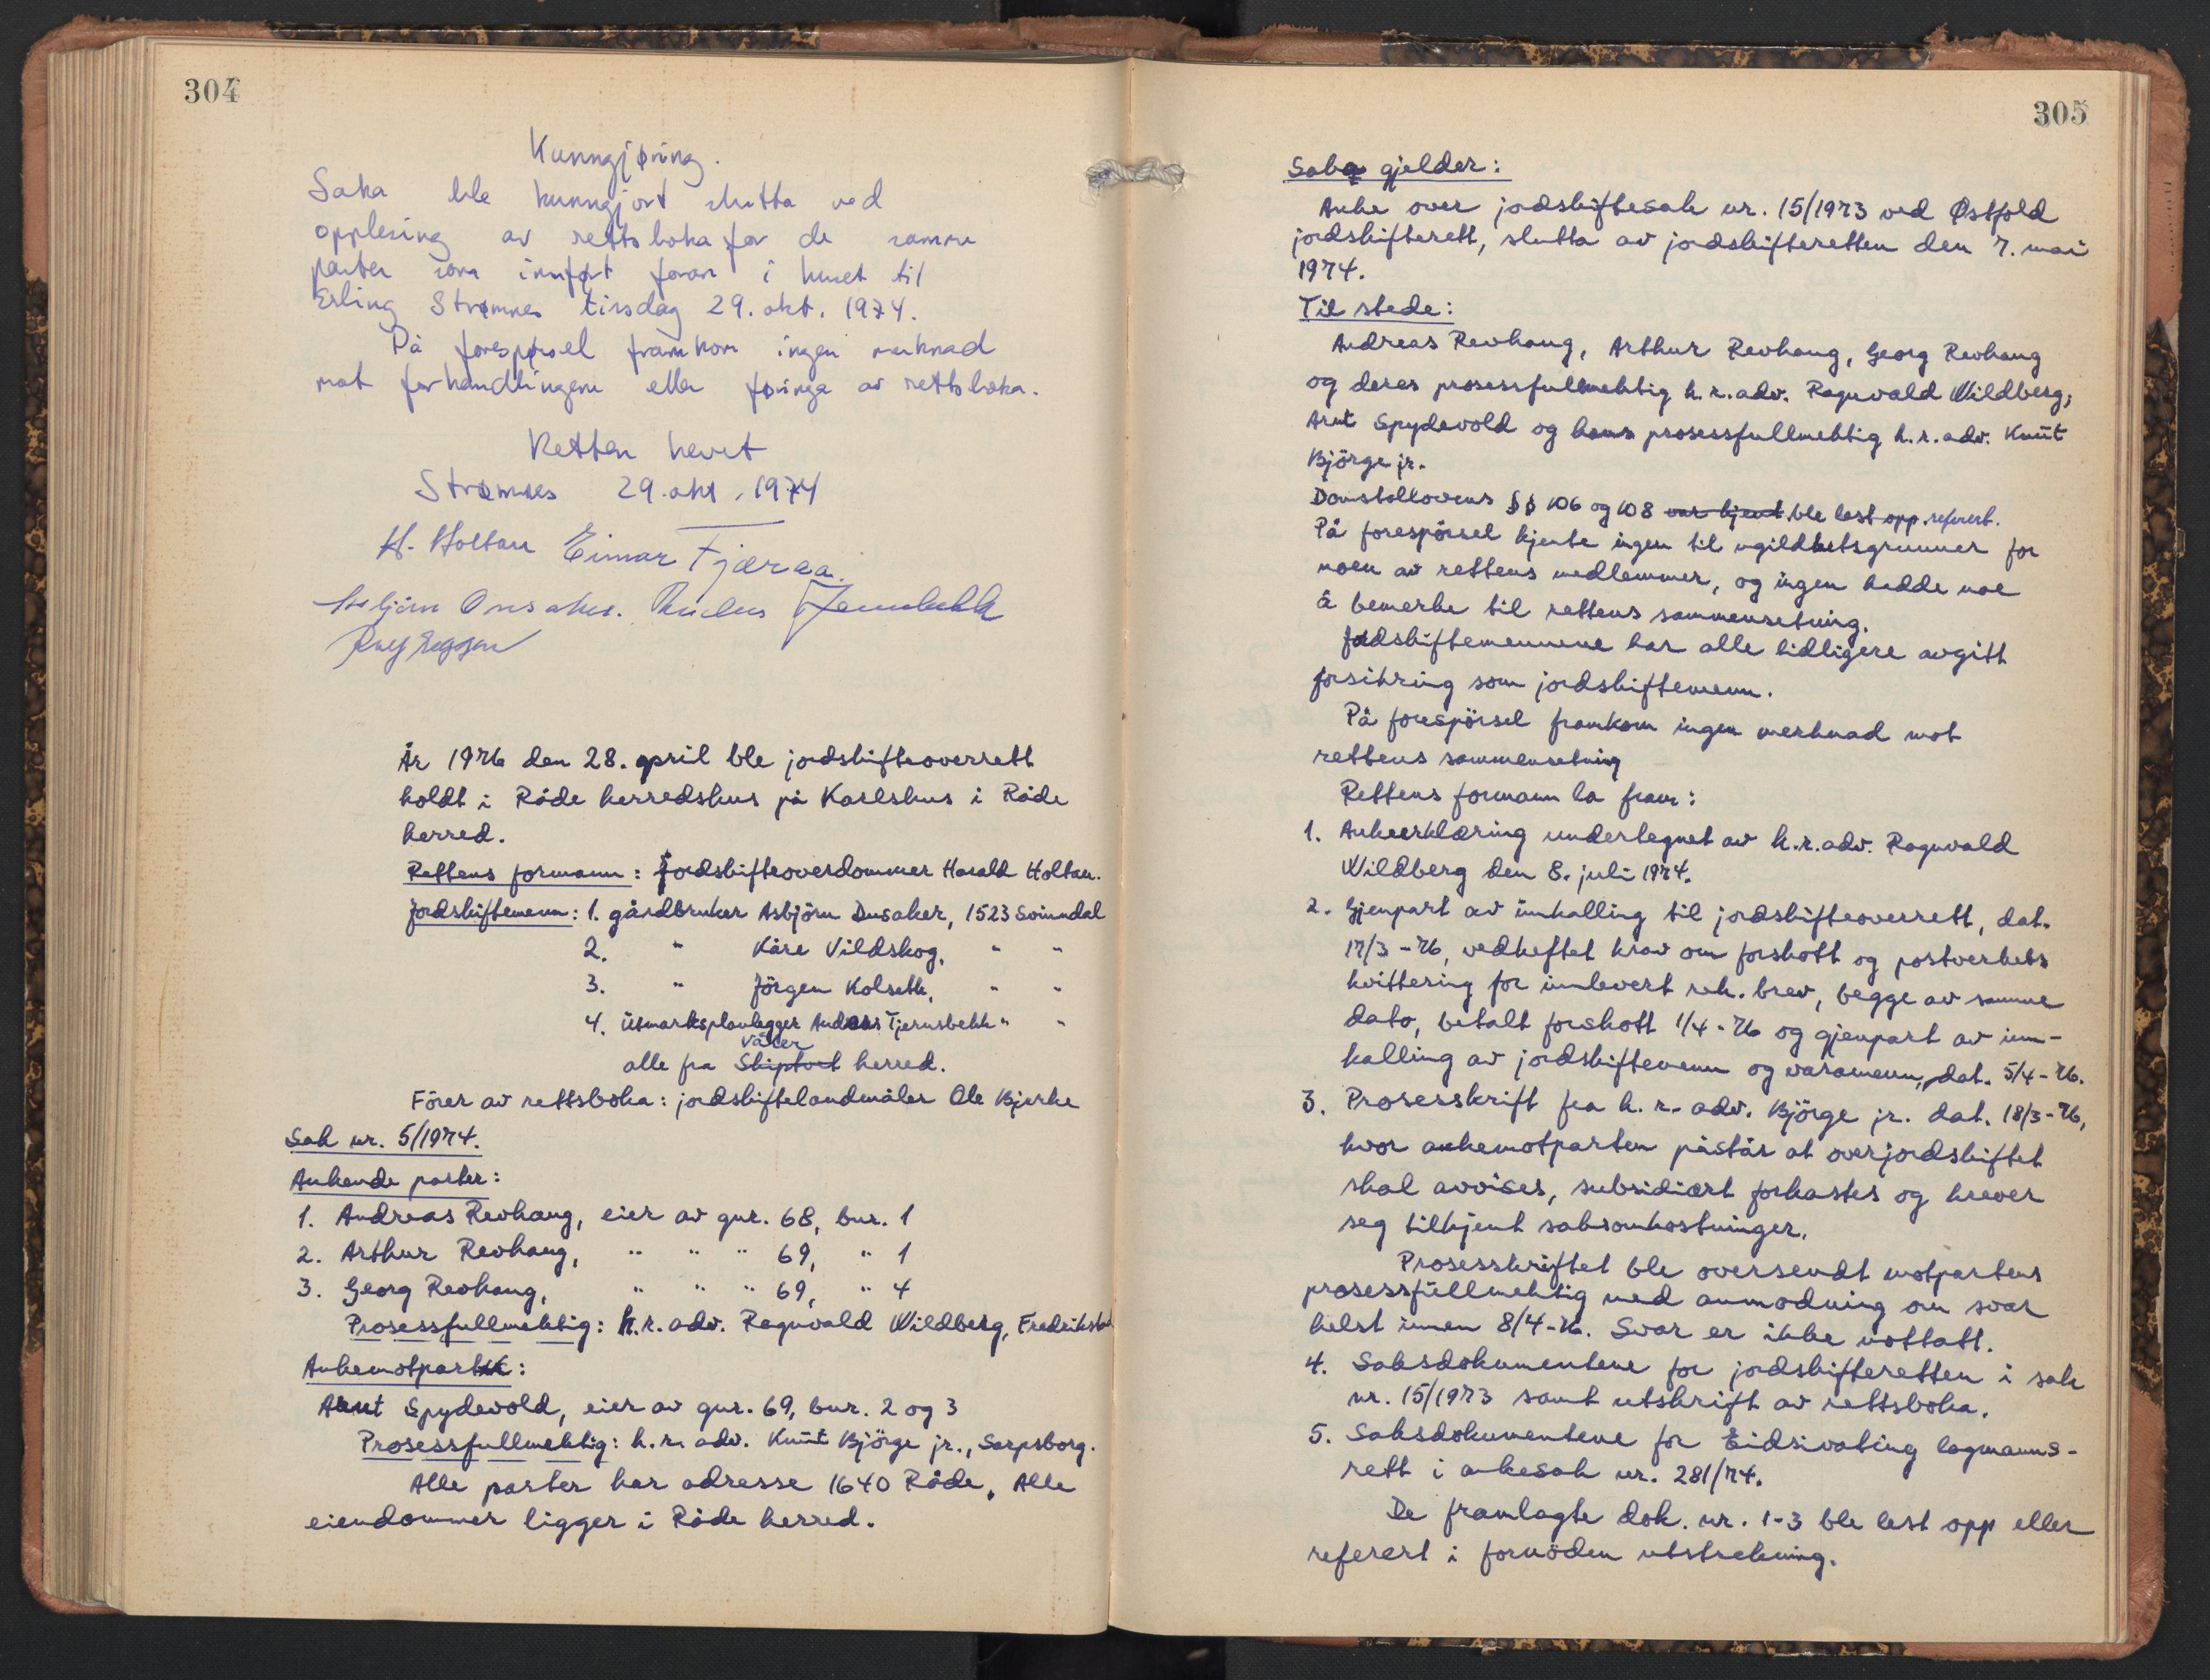 304
Kunngjøring.
Saka ble kunngjort slutta ved
opplesing av rettsboka for de samme
parter som innført foran i huset til
Erling Strømnes tirsdag 29. okt. 1974.
På forespørsel framkom ingen merknad
mot forhandlingene eller føringa av rettsboka.
Retten hevet
Strømnes 29. okt. 1974
H. Holtan Einar Fjæraa.
Asbjørn
År 1976 den 28. april ble jordskifteoverrett
holdt i Råde herredshus på Karlshus i Råde
herred.
Rettens formann: Jordskifteoverdommer Harald Holtan.
Jordskiftemenn: 1. gårdbruker Asbjörn Dusaker, 1523 Svinndal
2. " Kåre Vildskog, " "
3. " Jörgen Kolseth, " "
4. Utmarksplanlegger Anders Tjernsbekk " "
Våler
alle fra Skiptvet herred.
Förer av rettsboka: jordskiftelandmåler Ole Bjerke
Sak nr. 5/1974.
Ankende parter:
1. Andreas Revhaug, eier av gnr. 68, bnr. 1
2. Arthur Revhaug, " " " 69, " 1
3. Georg Revhaug, " " " 69, " 4
Prosessfullmektig: h.r. adv. Ragnvald Wildberg, Fredrikstad
Ankemotpart:
Arnt Spydevold, eier av gnr. 69, bnr. 2 og 3
Prosessfullmektig: h.r. adv. Knut Björge jr., Sarpsborg.
Alle parter har adresse 1640 Råde. Alle
eiendommer ligger i Råde herred.
305
Saka gjelder:
Anke over jordskiftesak nr. 15/1973 ved Østfold
jordskifterett, slutta av jordskifteretten den 7. mai
1974.
Til stede:
Andreas Revhaug, Arthur Revhaug, Georg Revhaug
og deres prosessfullmektig h.r. adv. Ragnvald Wildberg,
Arnt Spydevold og hans prosessfullmektig h.r. adv. Knut
Björge jr.
Domstollovens §§ 106 og 108 var kjent ble lest opp. referert.
På forespörsel kjente ingen til ugildhetsgrunner for
noen av rettens medlemmer, og ingen hadde noe
å bemerke til rettens sammensetning.
Jordskiftemennene har alle tidligere avgitt
forsikring som jordskiftemenn.
På forespörsel framkom ingen merknad mot
rettens sammensetning
Rettens formann la fram:
1. Ankeerklæring undertegnet av h.r. adv. Ragnvald
Wildberg den 8. juli 1974.
2. Gjenpart av innkalling til jordskifteoverrett, dat.
17/3-76, vedheftet krav om forskott og postverkets
kvittering for innlevert rek. brev, begge av samme
dato, betalt forskott 1/4-76 og gjenpart av inn-
kalling av jordskiftemenn og varamenn, dat. 5/4-76.
3. Prosesskrift fra h.r. adv. Björge jr. dat. 18/3-76,
hvor ankemotparten påstår at overjordskiftet
skal avvises, subsidiært forkastes og krever
seg tilkjent saksomkostninger.
Prosesskriftet ble oversendt motpartens
prosessfullmektig med anmodning om svar
helst innen 8/4-76. Svar er ikke mottatt.
4. Saksdokumentene for jordskifteretten i sak
nr. 15/1973 samt utskrift av rettsboka.
5. Saksdokumentene for Eidsivating lagmanns-
rett i ankesak nr. 281/74.
De framlagte dok. nr. 1-3 ble lest opp eller
referert i fornöden utstrekning.